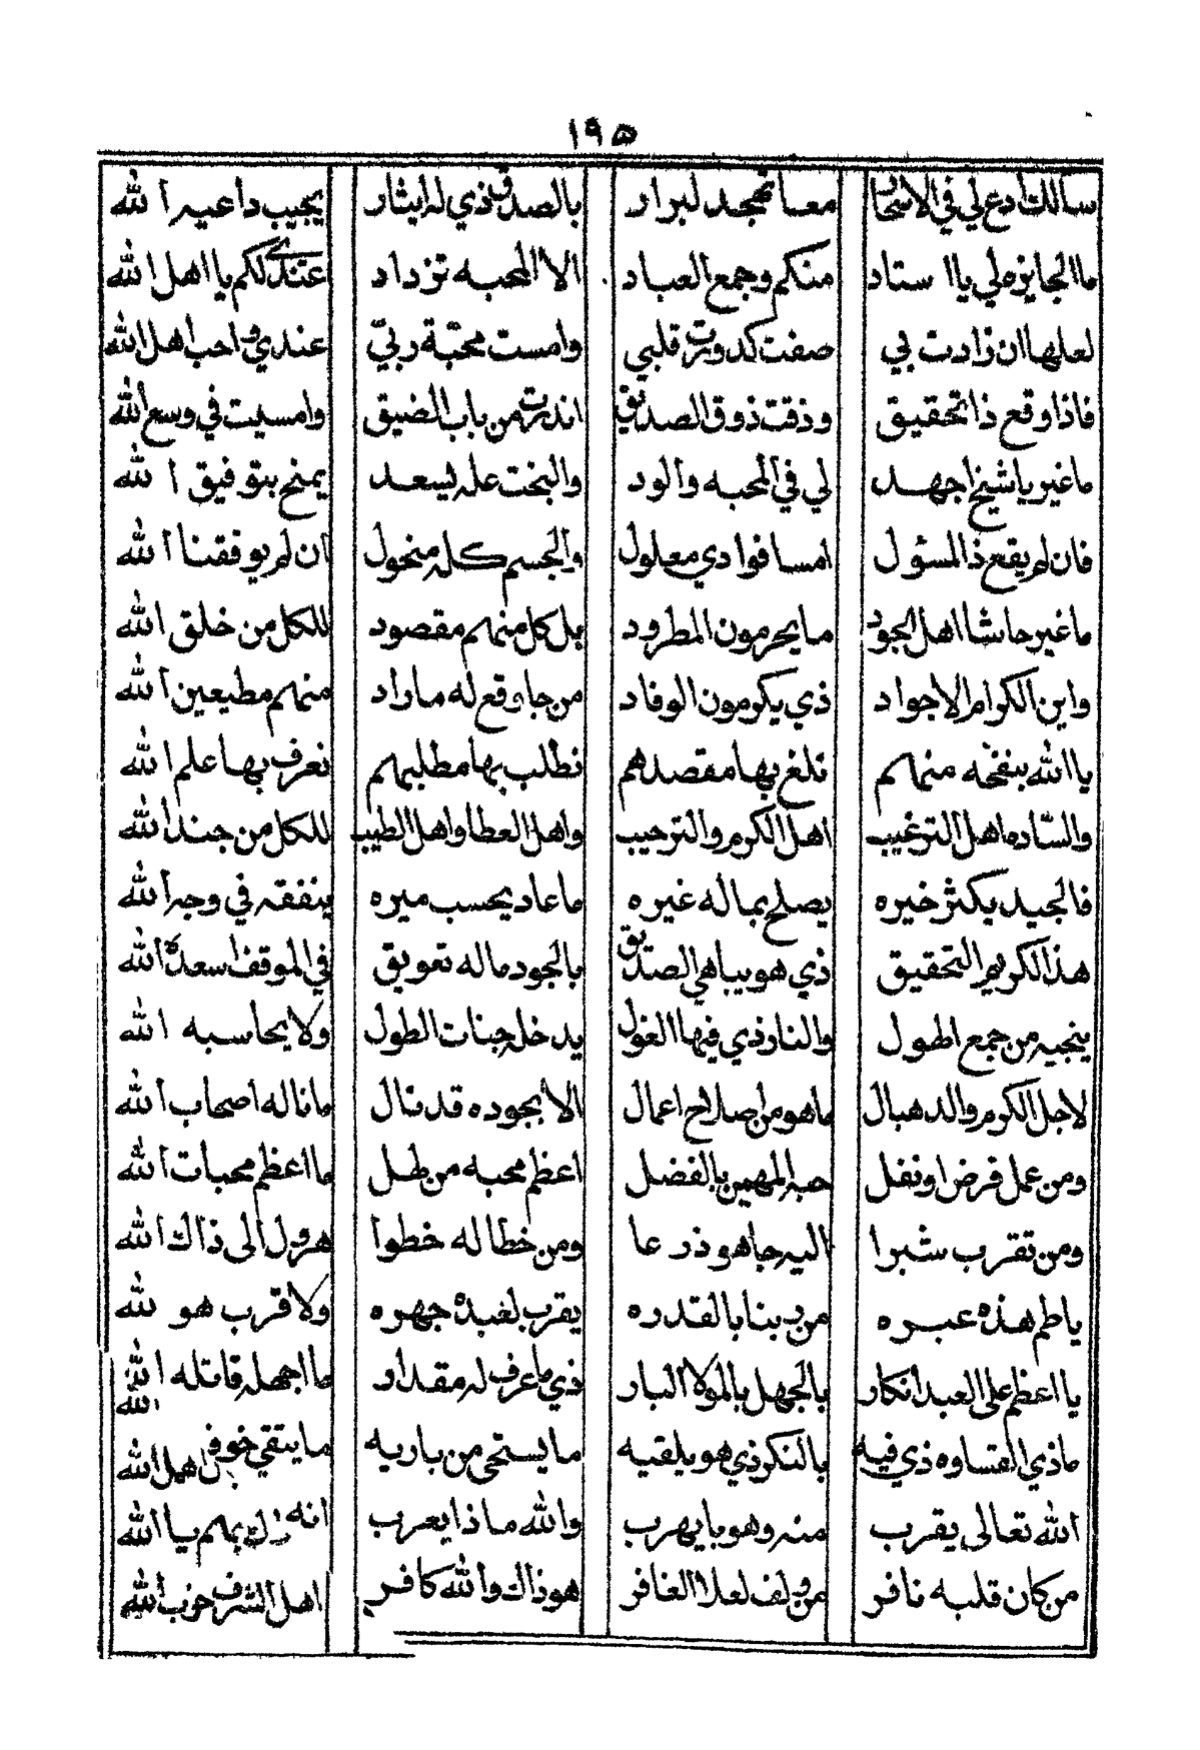 ١٩٥
سالك ادع لي في الاسحار معا تهجد لبرار بالصدق ذي له ايثار يجيب داعيه الله
ما الجايزه لي يا استاد منكم وجمع العباد الا المحبه تزداد عندي لكم يا اهل الله
لعلها ان زادت بي صفت كدورت قلبي وامست محبة ربي عندي واحب اهل الله
فاذا وقع ذا تحقيق وذقت ذوق الصديق اندرت من باب الضيق وامسيت في وسع الله
ما غير يا شيخ اجهد لي في المحبه والود والبخت عله يسعد يمنح بتوفيق الله
فان لم يقع ذا المسؤل امسا فوادي معلول والجسم كله منحول ان لم يوفقنا الله
ما غير حاشا اهل الجود ما يحرمون المطرود بل كل منهم مقصود للكل من خلق الله
واين الكرام الاجواد ذي يكرمون الوفاد من جا وقع له ماراد منهم مطيعين الله
يا الله بنفحه منهم نلغ بها مقصدهم نطلب بها مطلبهم نعرف بها علم الله
والساده اهل الترغيب اهل الكرم والترحيب واهل العطا واهل الطيب للكل من جند الله
فالجيد يكثر خيره يصلح بماله غيره ما عاد يحسب ميره ينفقه في وجه الله
هذا الكريم التحقيق ذي هو يباهي الصديق بالجود ماله تعويق في الموقف اسعده الله
ينجيه من جمع اطول والنار ذي فيها الغول يدخل جنات الطول ولا يحاسبه الله
لاجل الكرم والدهبال ما هو من اصلاح اعمال الا بجوده قد نال ما ناله اصحاب الله
ومن عمل فرض او نفل حبه المهيمن بالفضل اعظم محبه من طل ما اعظم محبات الله
ومن تقرب شبرا اليه جا هو ذرعا ومن خطا له خطوا هرول الى ذاك الله
يا طم هذه عبره من ربنا بالقدره يقرب لعبده جهره ولا قرب هو لله
يا اعظم على العبد انكار بالجهل بالمولا البار ذي ما عرف له مقدار ما اجهله قاتله الله
ما ذي القساوه ذي فيه بالنكر ذي هو يلقيه ما يستحي من باريه ما يتقي خوف اهل الله
الله تعالى يقرب منه وهو با يهرب والله ما ذا يعرب انه بهم يا الله
من كان قلبه نافر من ولف لعلا الغافر هو ذاك والله كافر اهل الشرف حزب الله